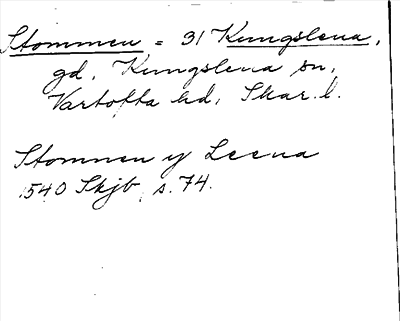 Stommen = 31 Kungslena,
gd, Kungslena sn,
Vartofta hd, Skar. l.
Stommen y Leena
1540 Skjb, s. 74.